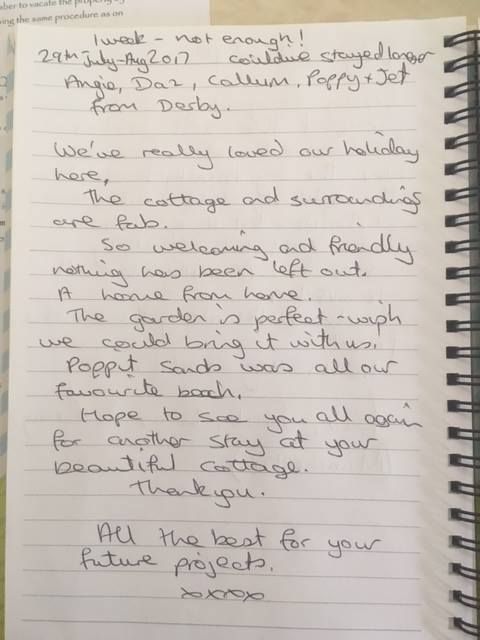 ber to vacate the property
ing the same procedure as on
1 week - not enough!
29th July-Aug 2017 could've stayed longer
Angie, Daz, Callum, Poppy + Jet
from Derby.
We've really loved our holiday
here,
The cottage and surroundings
are fab.
So welcoming and friendly
nothing has been left out.
A home from home.
The garden is perfect - wish
we could bring it with us.
Poppit Sands was all our
favourite beach.
Hope to see you all again
for another stay at your
beautiful cottage.
Thankyou.
All the best for your
future projects.
xxxxx